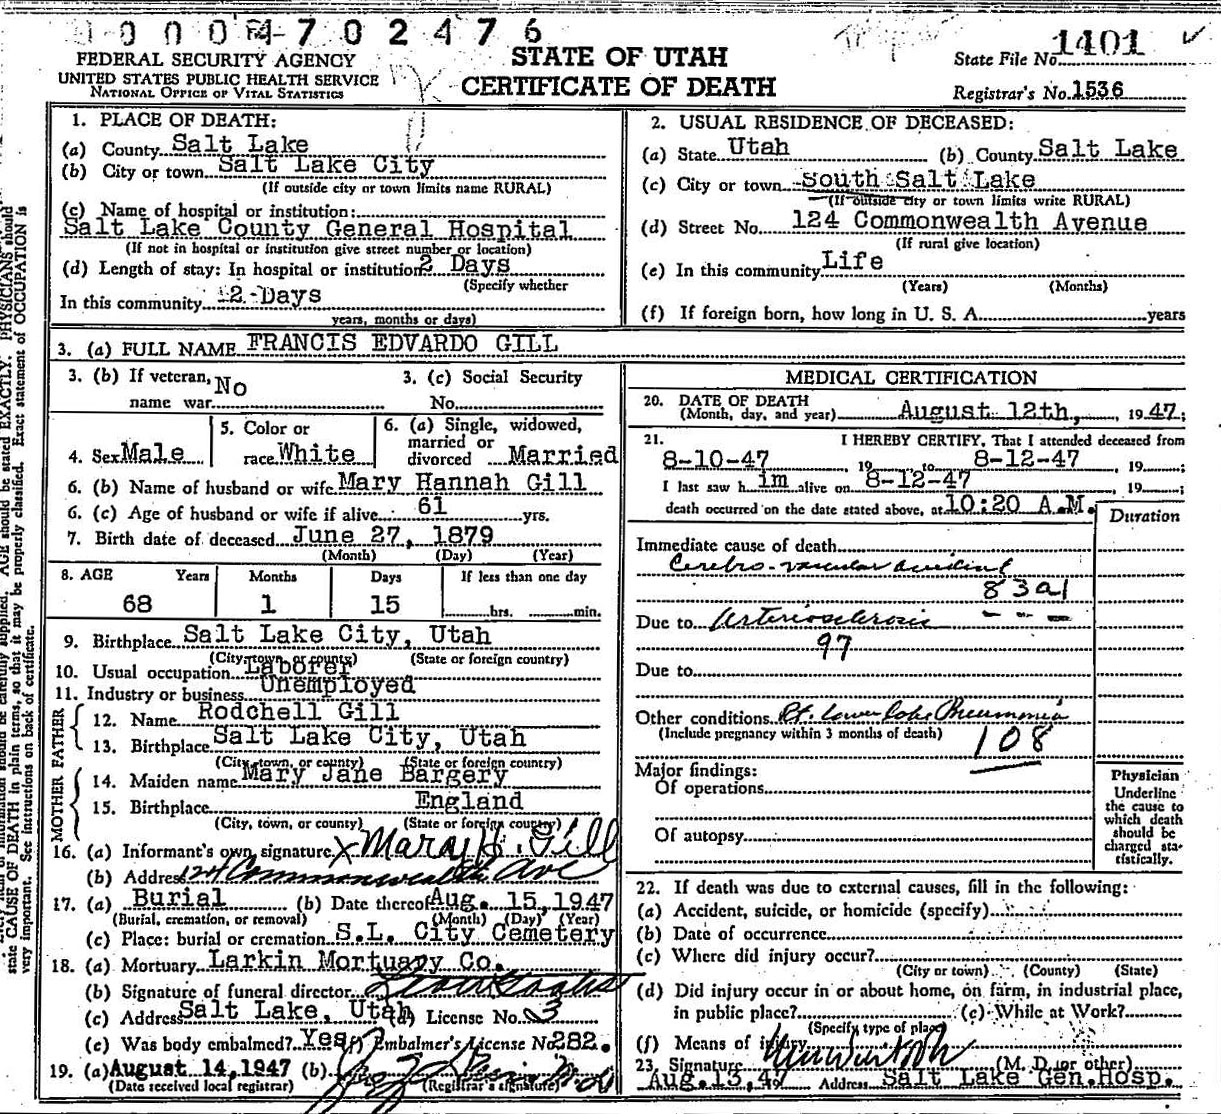 000 4702476
FEDERAL SECURITY AGENCY
UNITED STATES PUBLIC HEALTH SERVICE
NATIONAL OFFICE OF VITAL STATISTICS
STATE OF UTAH
CERTIFICATE OF DEATH
State File No. 1401
Registrar's No. 1536
1. PLACE OF DEATH:
(a) County Salt Lake
(b) City or town Salt Lake City
(If outside city or town limits name RURAL)
(c) Name of hospital or institution:
Salt Lake County General Hospital
(If not in hospital or institution give street number or location)
(d) Length of stay: In hospital or institution 2 Days
(Specify whether
In this community 2 Days
years, months or days)
2. USUAL RESIDENCE OF DECEASED:
(a) State Utah (b) County Salt Lake
(c) City or town South Salt Lake
(If outside city or town limits write RURAL)
(d) Street No. 124 Commonwealth Avenue
(If rural give location)
(e) In this community Life
(Years) (Months)
(f) If foreign born, how long in U. S. A. years
3. (a) FULL NAME FRANCIS EDVARDO GILL
3. (b) If veteran, No
name war
3. (c) Social Security
No.
4. Sex Male
5. Color or
race White
6. (a) Single, widowed,
married or
divorced Married
6. (b) Name of husband or wife Mary Hannah Gill
6. (c) Age of husband or wife if alive 61 yrs.
7. Birth date of deceased June 27, 1879
(Month) (Day) (Year)
8. AGE Years Months Days If less than one day
68 1 15 hrs. min.
9. Birthplace Salt Lake City, Utah
(City, town, or county) (State or foreign country)
10. Usual occupation Laborer
11. Industry or business Unemployed
FATHER
12. Name Rodchell Gill
13. Birthplace Salt Lake City, Utah
(City, town, or county) (State or foreign country)
MOTHER
14. Maiden name Mary Jane Bargery
15. Birthplace England
(City, town, or county) (State or foreign country)
16. (a) Informant's own signature X Mary H. Gill
(b) Address 124 Commonwealth Ave
17. (a) Burial (b) Date thereof Aug. 15, 1947
(Burial, cremation, or removal) (Month) (Day) (Year)
(c) Place: burial or cremation S.L. City Cemetery
18. (a) Mortuary Larkin Mortuary Co.
(b) Signature of funeral director
(c) Address Salt Lake, Utah (d) License No. 3
(e) Was body embalmed? Yes (f) Embalmer's License No. 282.
19. (a) August 14, 1947 (b)
(Date received local registrar) (Registrar's signature)
MEDICAL CERTIFICATION
20. DATE OF DEATH
(Month, day, and year) August 12th, 1947;
21. I HEREBY CERTIFY, That I attended deceased from
8-10-47 19 to 8-12-47 19 ;
I last saw h im alive on 8-12-47 , 19 ;
death occurred on the date stated above, at 10:20 A.M.
Duration
Immediate cause of death
Cerebro-vascular accident
83a1
Due to Arteriosclerosis
97
Due to
Other conditions Rt. Lower Lobe Pneumonia
(Include pregnancy within 3 months of death)
108
Major findings:
Of operations
Of autopsy
Physician
Underline
the cause to
which death
should be
charged sta-
tistically.
22. If death was due to external causes, fill in the following:
(a) Accident, suicide, or homicide (specify)
(b) Date of occurrence
(c) Where did injury occur?
(City or town) (County) (State)
(d) Did injury occur in or about home, on farm, in industrial place,
in public place? (e) While at Work?
(Specify type of place)
(f) Means of injury
23. Signature (M. D. or other)
Aug. 13, 47 Address Salt Lake Gen. Hosp.
AGE should be stated EXACTLY. PHYSICIANS should
state CAUSE OF DEATH in plain terms, so that it may be properly classified. Exact statement of OCCUPATION is
very important. See instructions on back of certificate.